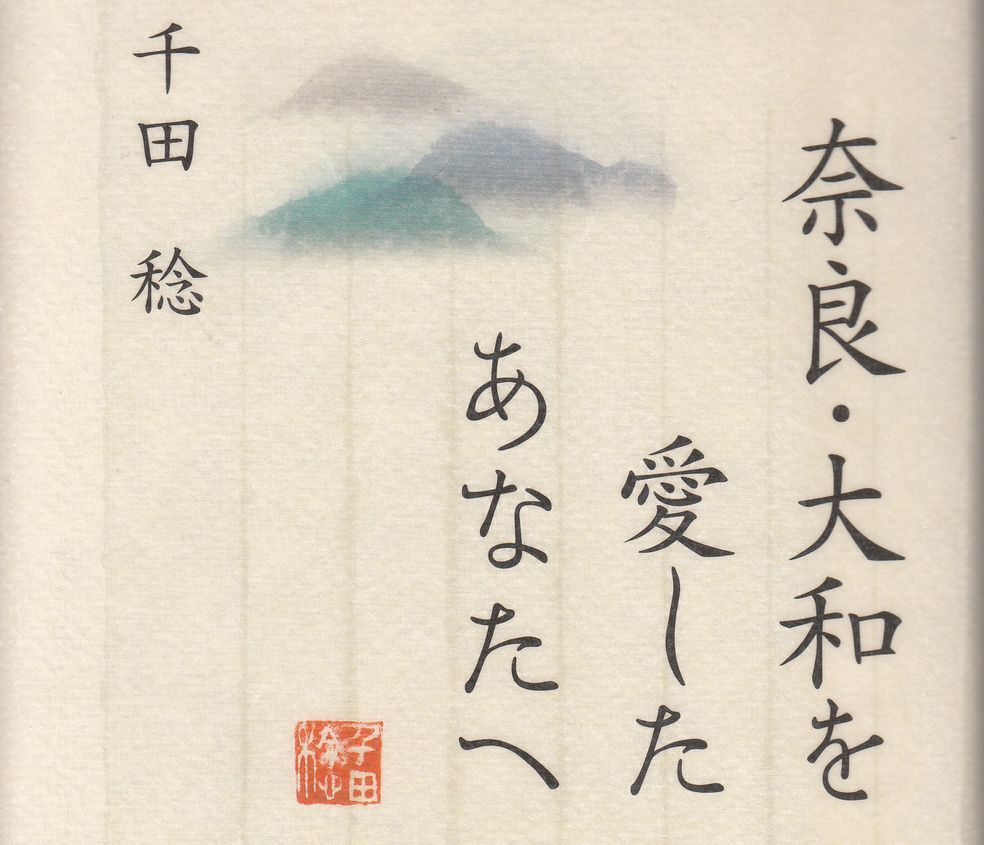 奈良・大和を
愛した
あなたへ
千田 稔
千田
稔